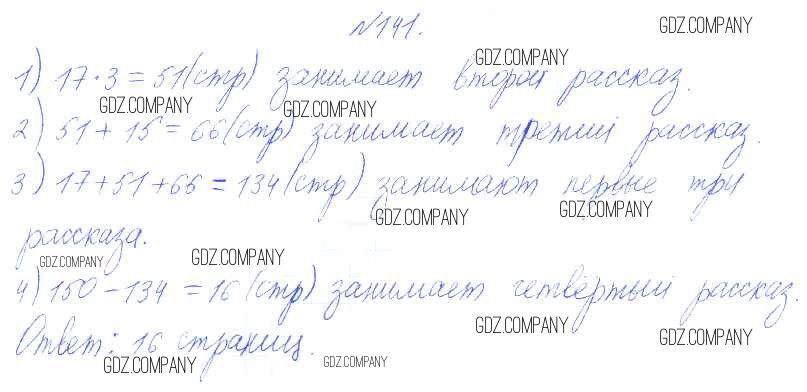 №141.
GDZ.COMPANY
GDZ.COMPANY
1) 17·3=51(стр) занимает второй рассказ.
GDZ.COMPANY GDZ.COMPANY
2) 51+15=66(стр) занимает третий рассказ.
3) 17+51+66=134(стр) занимают первые три
GDZ.COMPANY GDZ.COMPANY
рассказа.
GDZ.COMPANY GDZ.COMPANY
4) 150-134=16(стр) занимает четвёртый рассказ.
GDZ.COMPANY GDZ.COMPANY
Ответ: 16 страниц.
GDZ.COMPANY GDZ.COMPANY